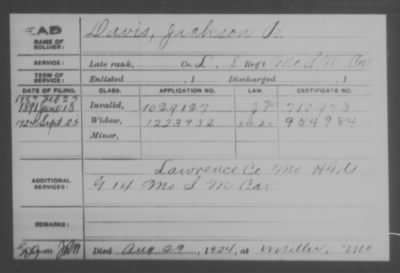 EAD
NAME OF SOLDIER: Davis, Jackson
SERVICE: Late rank, Co. L, 8 Reg't Mo S M Cav
TERM OF SERVICE: Enlisted , 1 Discharged , 1
DATE OF FILING. CLASS. APPLICATION NO. LAW. CERTIFICATE NO.
1891 June 13 Invalid, 1029127
1924 Sept 24 Widow, 1223932 954984
Minor,
ADDITIONAL SERVICES: Lawrence Co Mo H Gds
G 14 Mo S M Cav
REMARKS:
Died Aug 29, 1924, at Miller, Mo